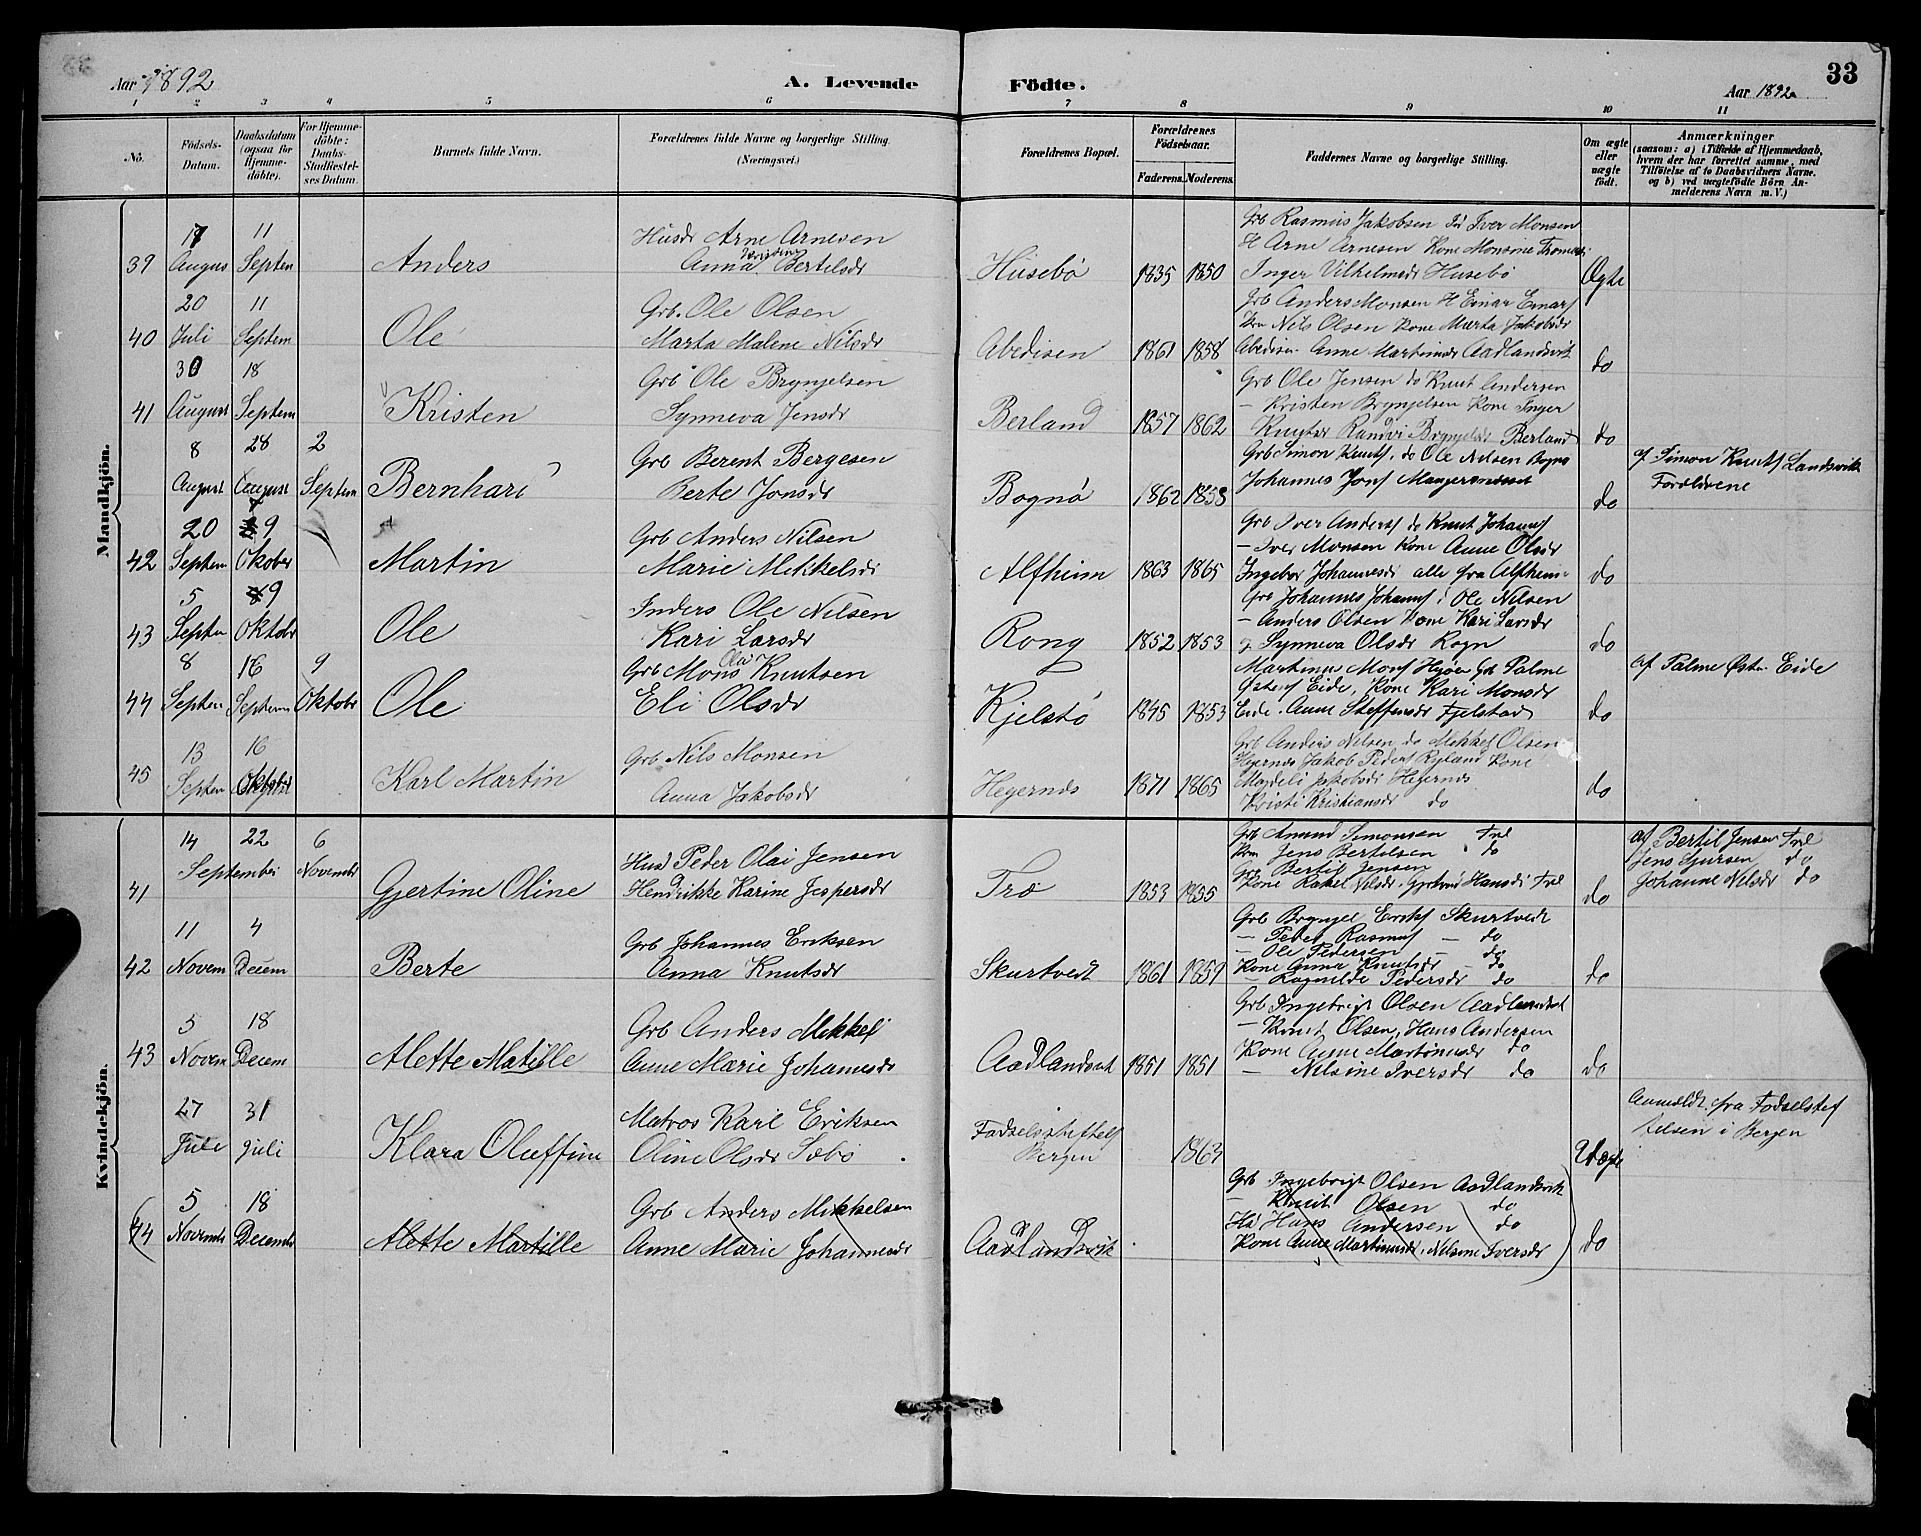 Aar 1892
A. Levende
Födte.
33
Aar 1892
1 2 3 4 5 6 7 8 9 10 11
No.
Födsels-Datum.
Daabsdatum (ogsaa for Hjemme-döbte).
For Hjemme-döbte: Daabs-Stadfæstel-ses Datum.
Barnets fulde Navn.
Forældrenes fulde Navne og borgerlige Stilling. (Næringsvei.)
Forældrenes Bopæl.
Forældrenes Födselsaar.
Faderens. Moderens.
Faddernes Navne og borgerlige Stilling.
Om ægte eller uægte födt.
Anmærkninger
(saasom: a) i Tilfælde af Hjemmedaab, hvem der har forrettet samme, med Tilföielse af to Daabsvidners Navne, og b) ved uægtefödte Börn An-melderens Navn m. V.)
Mandkjön.
39 17 August 11 Septem Anders
Husdr Arne Arnesen
Anna Bertelsdr
Husebö 1835 1850
Grb Rasmus Jakobsen Iver Monsen
H Arne Arnesen Kone Monsine
Inger Vilhelmsdr Husebö
Ægte
40 20 Juli 11 Septem Ole
Grb. Ole Olsen
Marta Malene Nilsdr
Abedisen 1861 1858
Grb Anders Monsen H Einar Einars
Nils Olsen Kone Marta Jakobsdr
Abedisen Anne Martinsdr Aadlandsvik
do
41 30 August 18 Septem Kristen
Grb Ole Brynjelsen
Synneva Jensdr
Berland 1857 1862
Grb Ole Jensen do Knut Andersen
– Kristen Brynjelsen Kone Inger
Knutsdr Randvi Brynjelsdr Berland
do
8 August 28 August 2 Septem Bernhard
Grb Berent Bergesen
Berte Jonsdr
Bognö 1862 1858
Grb Simon Knuts. do Ole Nilsen Bognö
Johannes Jons
do
af Simon Knuts Landsvik
Foreldrene
42 20 Septem 9 Oktober Martin
Grb Anders Nilsen
Marie Mikkelsdr
Alfheim 1863 1865
Grb Iver Anders do Knut Johans
– Iver Monsen Kone Anne Olsdr
Ingebor Johannesdr alle fra Alfheim
do
43 5 Septem 9 Oktobr Ole
Inders Ole Nilsen
Kari Larsdr
Rong 1852 1853
Grb Johannes Johans Ole Nilsen
– Anders Olsen Kone Kari Larsdr
Synneva Olsdr Rogn
do
44 8 Septem 16 Septem 9 Oktobr Ole
Grb Mons Olai Knutsen
Eli Olsdr
Kjelstö 1845 1853
Martinus Mons Hjöen Grb Palme
Östens Eide, Kone Kari Monsdr
Eide. Anne Steffensdr Fjelstad
do
af Palme Östen Eide
45 13 Septem 16 Oktober Karl Martin
Grb Nils Monsen
Anna Jakobsdr
Hegernes 1871 1865
Grb Anders Nilsen do Mikkel Olsen
Hegernes Jakob Peders Ryland Kone
Magdeli Jakobsdr Hegernes
Kristi Kristiansdr do
do
Kvindekjön.
41 14 September 22 6 November Gjertine Oline
Husd Peder Olai Jensen
Hendrikke Karine Jespersdr
Træ 1853 1855
Grb Amund Simonsen Træ
Jens Bertelsen do
Grb Bertil Jensen
Kone Rakel Nilsdr. Gjertrud Hansdr Træ
do
af Bertil Jensen Træ
Jens Sjursen do
Johanne Nilsdr do
42 11 Novem 4 Decem Berte
Grb Johannes Eriksen
Anna Knutsdr
Skurtvedt 1861 1859
Grb Brynjel Eriks Skurtvedt
– Peder Rasmus – do
– Ole Pedersen – do
Kone Anna Knutsdr – do
– Ragnilde Pedersdr do
do
43 5 Novem 18 Decem Alette Matille
Grb Anders Mikkels
Anne Marie Johannesdr
Aadlandsvik 1851 1851
Grb Ingebrigt Olsen Aadlandsvik
– Knut Olsen, Hans Andersen
Kone Anne Martinusdr do
– Nilsine Iversdr do
do
27 Juli 31 Juli Klara Oluffine
Matros Karl Eriksen
Oline Olsdr Sæbö
Födselsstiftels
Bergen
1863
Uægte
Anmeldt fra Födselstif
telsen i Bergen
(44 5 Novembr 18 Decembr Alette Martille
Grb Anders Mikkelsen
Anne Marie Johannesdr
Aadlandsvik
Grb Ingebrigt Olsen Aadlandsvik
– Knut Olsen do
Hs Hans Andersen do
Kone Anne Martinusdr, Nilsine Iversdr )
do